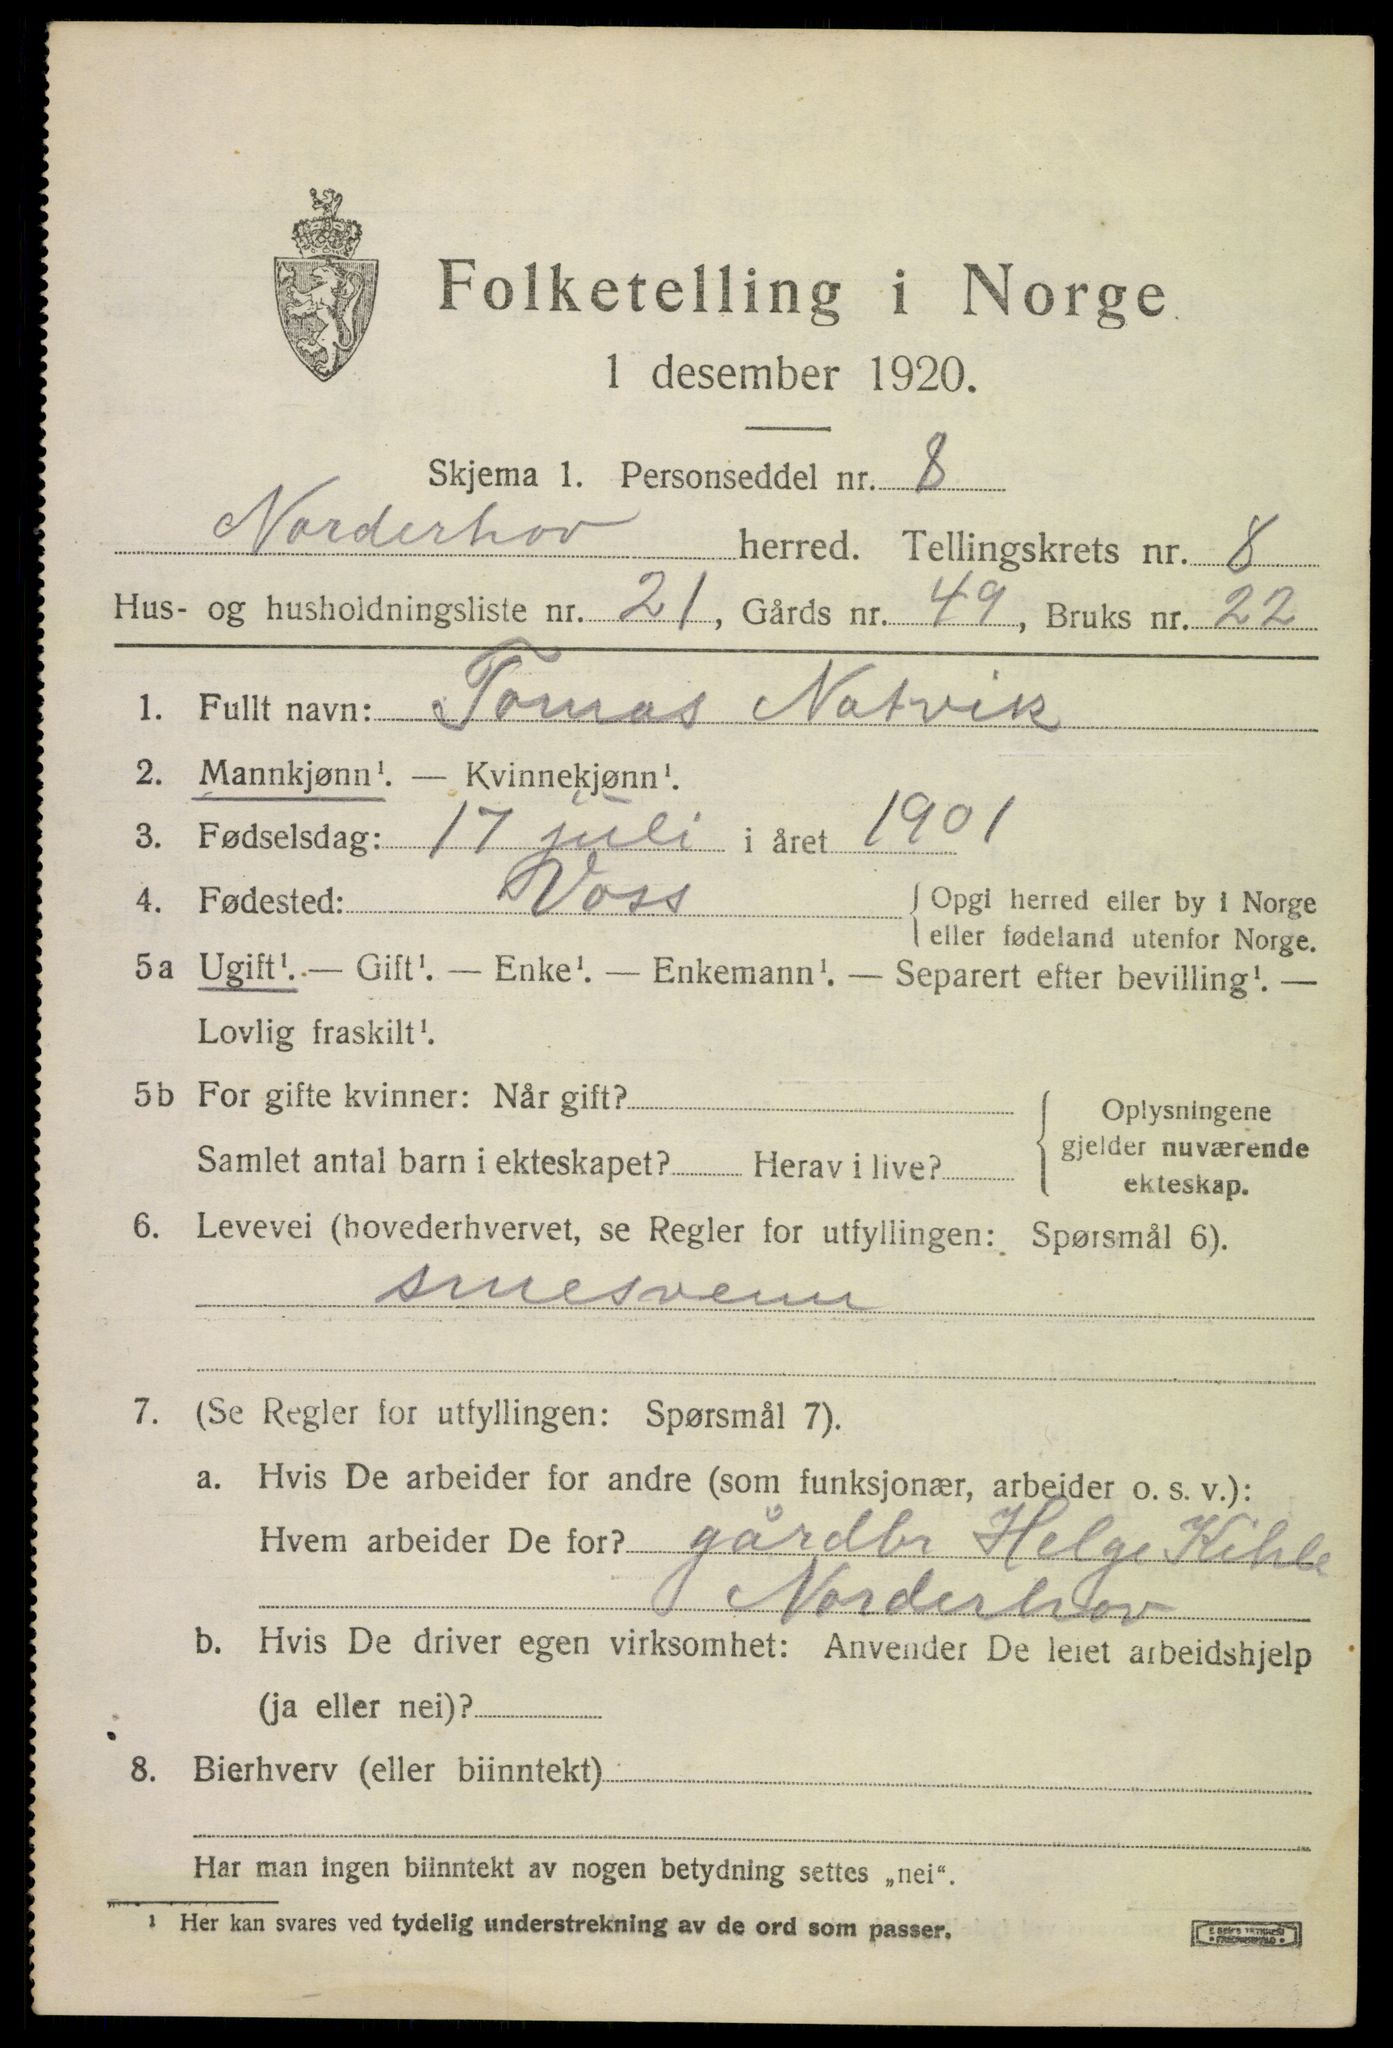 Folketelling i Norge
1 desember 1920.
Skjema 1. Personseddel nr. 8
Norderhov herred. Tellingskrets nr. 8
Hus- og husholdningsliste nr. 21, Gårds nr. 49, Bruks nr. 22
1. Fullt navn: Tomas Natvik
2. Mannkjønn¹. — Kvinnekjønn¹.
3. Fødselsdag: 17 juli i året 1901
4. Fødested: Voss { Opgi herred eller by i Norge
eller fødeland utenfor Norge.
5a Ugift¹. — Gift¹. — Enke¹. — Enkemann¹. — Separert efter bevilling¹. —
Lovlig fraskilt¹.
5b For gifte kvinner: Når gift?
Samlet antal barn i ekteskapet? Herav i live?
{ Oplysningene
gjelder nuværende
ekteskap.
6. Levevei (hovederhvervet, se Regler for utfyllingen: Spørsmål 6).
smesvenn
7. (Se Regler for utfyllingen: Spørsmål 7).
a. Hvis De arbeider for andre (som funksjonær, arbeider o. s. v.):
Hvem arbeider De for? gårdbr Helge Kihle
Norderhov
b. Hvis De driver egen virksomhet: Anvender De leiet arbeidshjelp
(ja eller nei)?
8. Bierhverv (eller biinntekt)
Har man ingen biinntekt av nogen betydning settes „nei“.
¹ Her kan svares ved tydelig understrekning av de ord som passer.